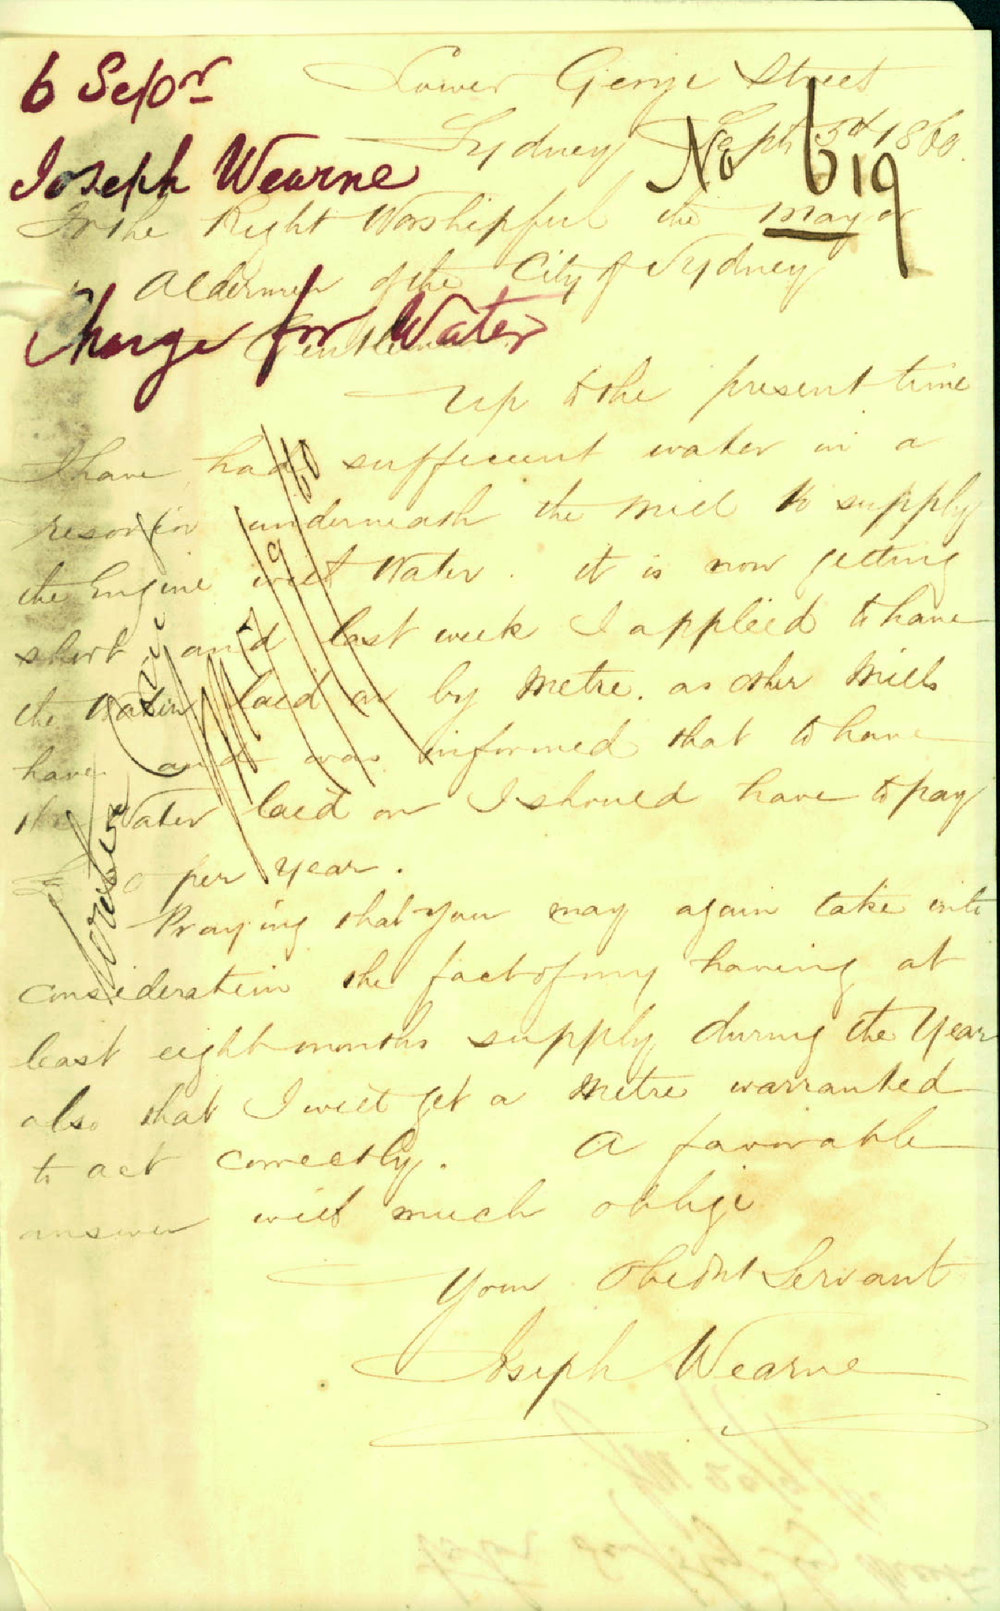 6 Sepr
Joseph Wearne
Charge for Water
No 619
Lower George Street
Sydney Sept 5th 1860.
To the Right Worshipful the Mayor
Aldermen of the City of Sydney
Gentlemen
Up to the present time
I have had sufficient water in a
underneath the mill to supply
the Engine with Water. it is now getting
short, and last week I applied to have
the Water laid on by Metre. as other Mills
have and was informed that to have
the Water laid on I should have to pay
per year.
Praying that you may again take into
consideration the fact of my having at
least eight months supply during the Year
also that I will get a Metre warranted
to act correctly. A favorable
answer will much oblige
Your Obednt Servant
Joseph Wearne